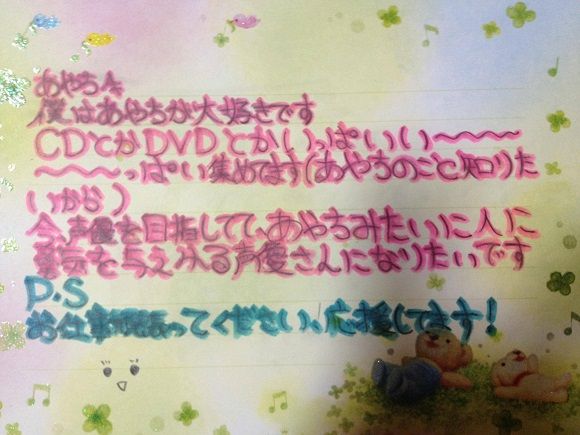 あやち🙏
僕はあやちが大好きです
CDとかDVDとかいっぱいいい〜〜〜〜
〜〜〜っぱい集めてます(あやちのこと知りた
いから)
今、声優を目指してて、あやちみたいに人に
勇気を与えれる声優さんになりたいです
P.S
お仕事頑張ってください、応援してます!